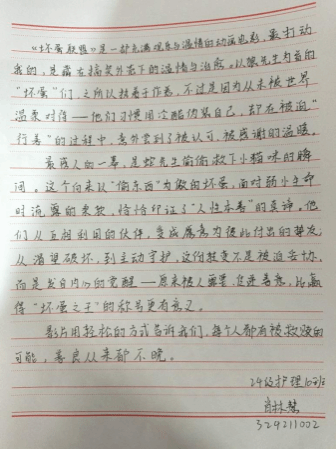 《坏蛋联盟》是一部充满欢乐与温情的动画电影，最打动
我的，是藏在搞笑外壳下的温情与治愈。以狼先生为首的
“坏蛋”们，之所以执着于作恶，不过是因为从未被世界
温柔对待——他们习惯用冷酷伪装自己，却在被迫“
行善”的过程中，意外尝到了被认可、被感谢的温暖。
最感人的一幕，是蛇先生偷偷救下小猫咪的瞬
间。这个向来以“偷东西”为傲的坏蛋，面对弱小生命
时流露的柔软，恰恰印证了“人性本善”的真谛。他
们从互相利用的伙伴，变成愿意为彼此付出的挚友，
从渴望破坏，到主动守护，这份转变不是被迫妥协，
而是发自内心的觉醒——原来被人需要，传递善意，比赢
得“坏蛋之王”的称号更有意义。
影片用轻松的方式告诉我们，每个人都有被救赎的
可能，善良从来都不晚。
24级护理10班
林慧
329211002